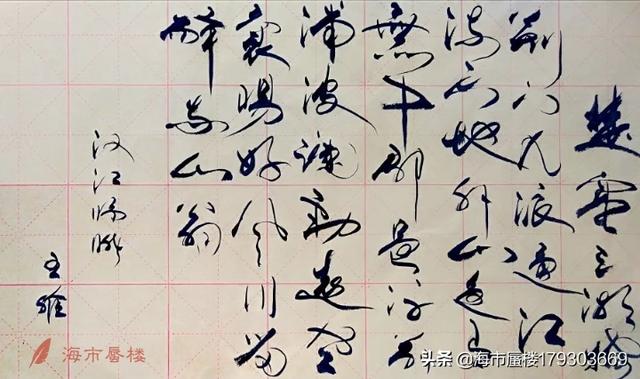 楚塞三湘接
荆门九派通江
流天地外山色有
無中郡邑浮前
浦波澜動遠空
襄陽好风日留
醉与山翁
汉江临眺
王维
海市蜃楼
头条 @海市蜃楼179303669